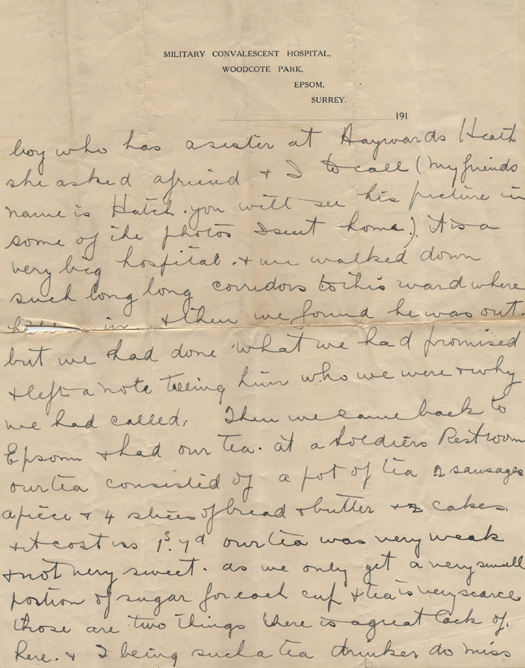 MILITARY CONVALESCENT HOSPITAL,
WOODCOTE PARK,
EPSOM,
SURREY.
191
boy who has a sister at Haywards Heath
she asked a friend & I to call (my friends
name is Hatch. you will see his picture in
some of the photos I sent home). it is a
very big hospital. & we walked down
such long long corridors to his ward where
in & then we found he was out.
but we had done what we had promised
& left a note telling him who we were & why
we had called. Then we came back to
Epsom & had our tea. at a Soldiers Restroom
our tea consisted of a pot of tea 2 sausages
apiece & 4 slices of bread & butter & 2 cakes.
& it cost us 1s. 7d our tea was very weak
& not very sweet. as we only get a very small
portion of sugar for each cup & tea is very scarce
those are two things there is a great lack of.
here. & I being such a tea drinker do miss